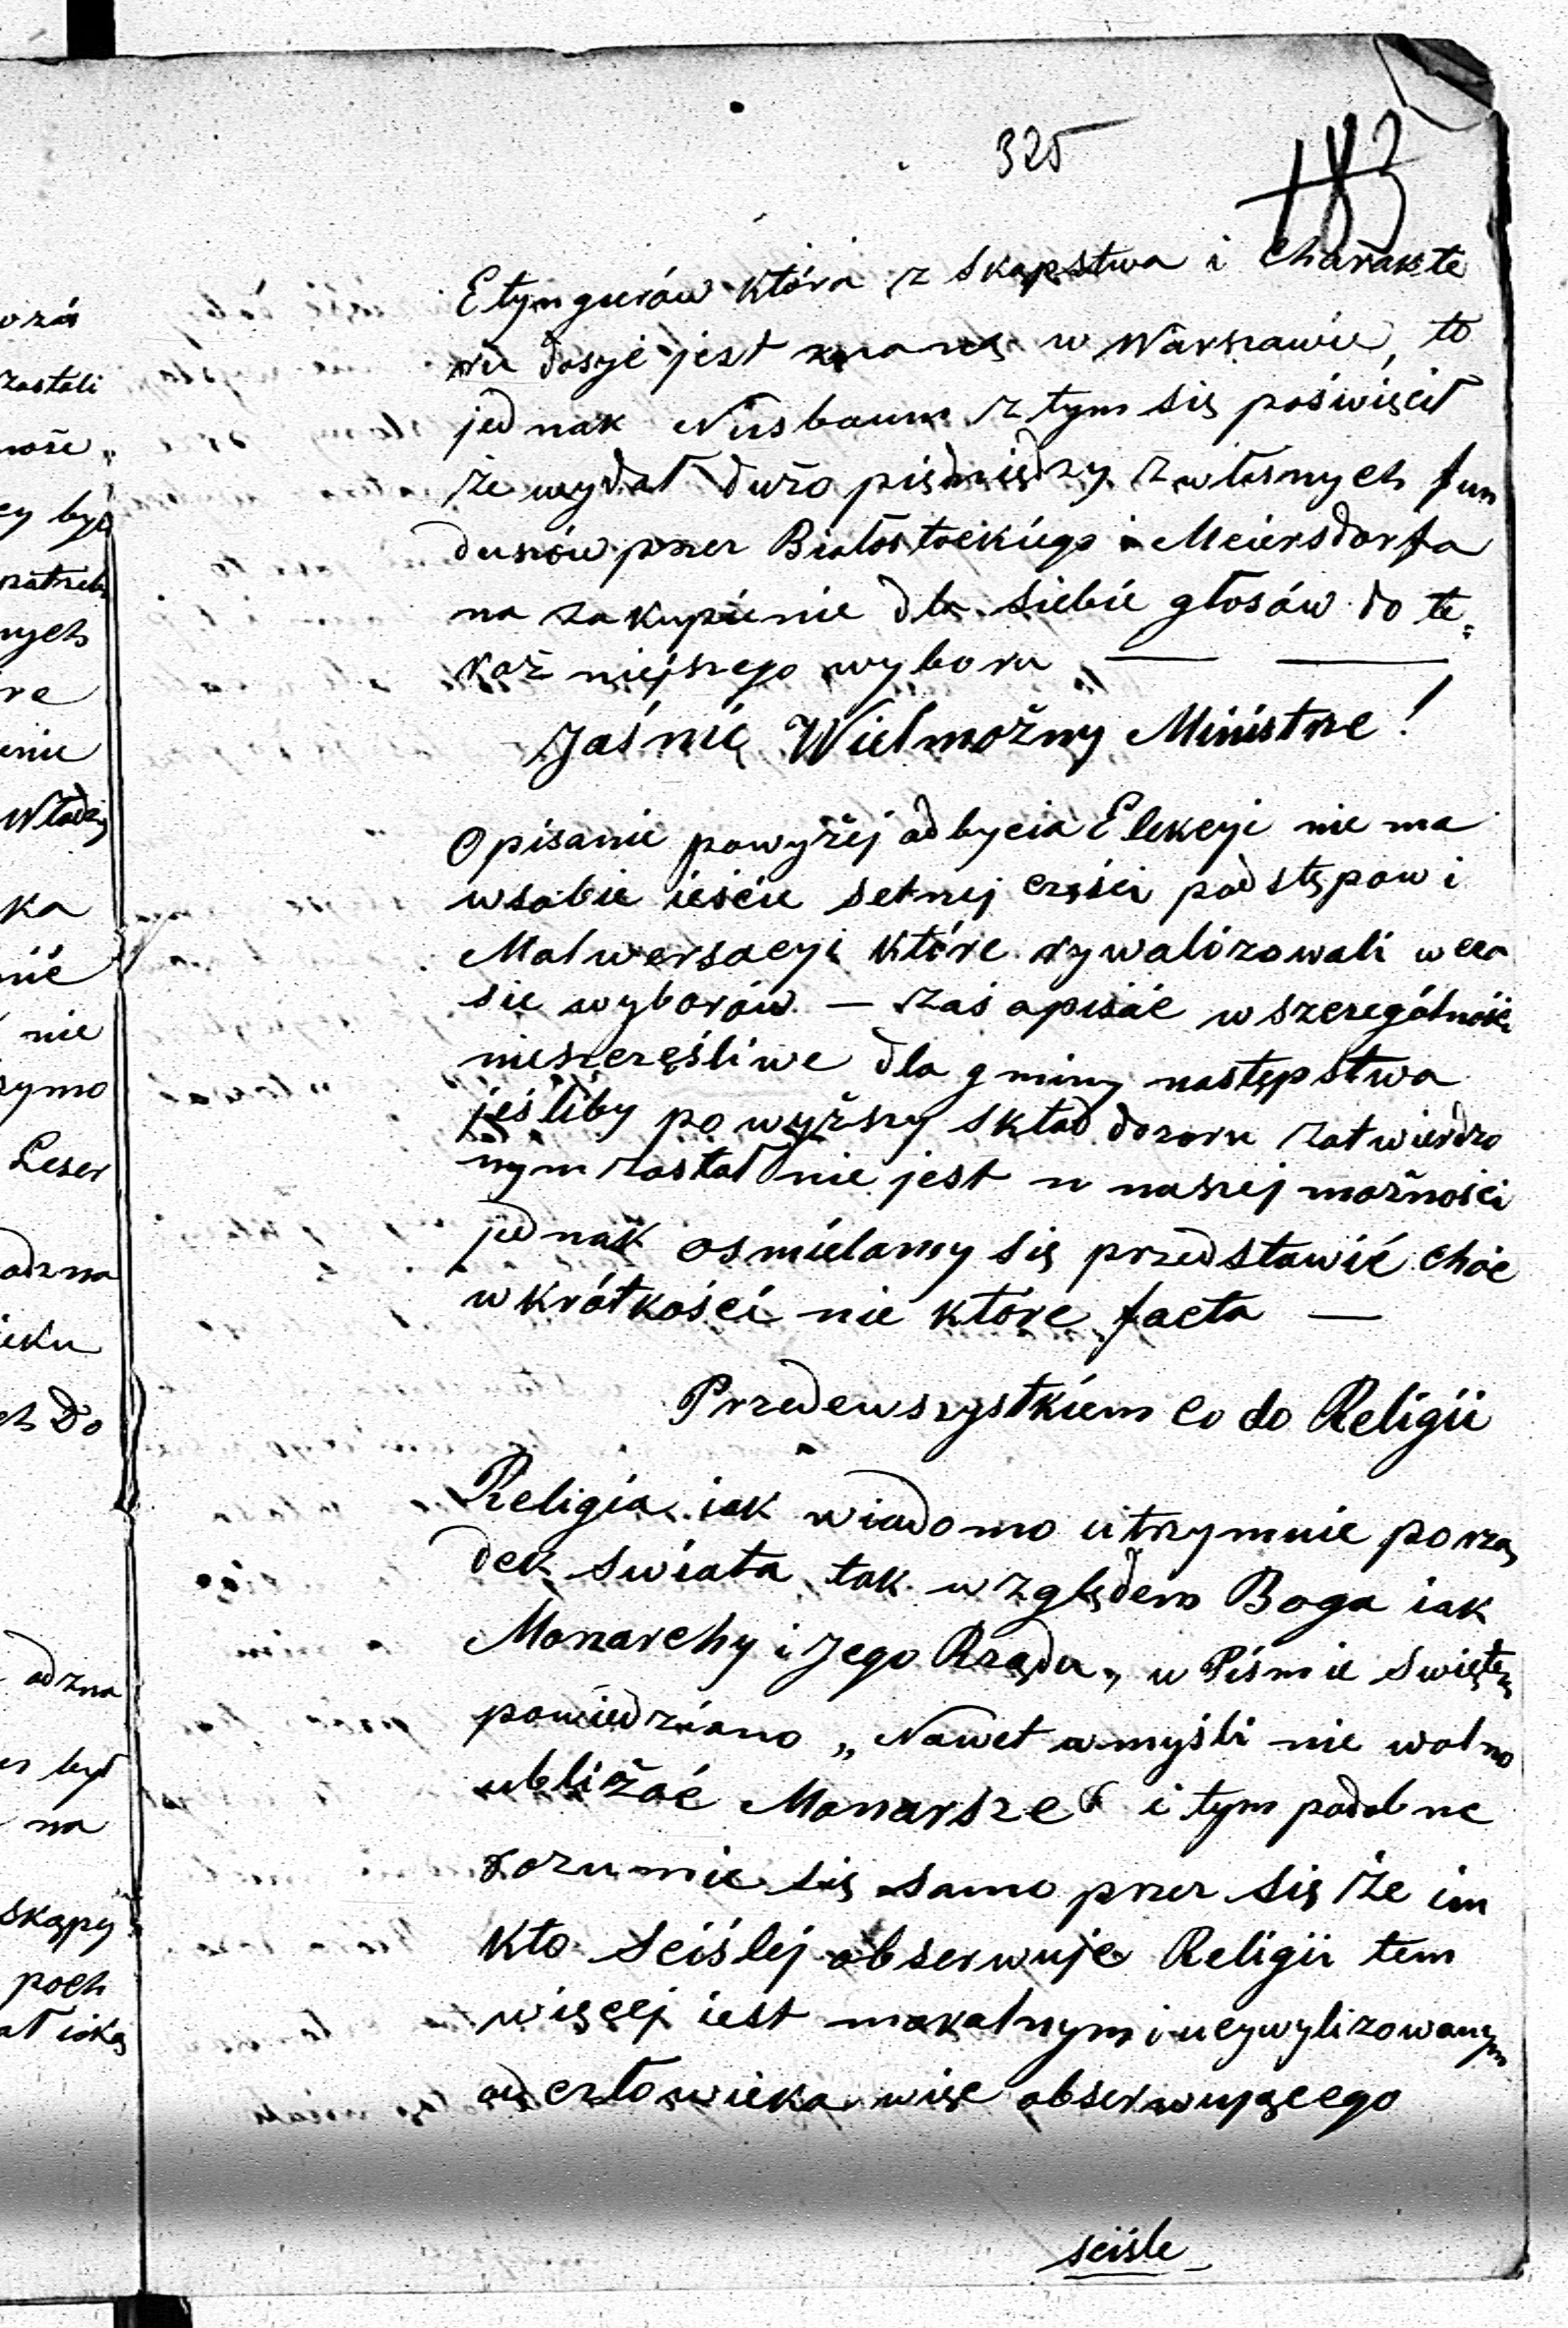 325
183
Etyngerów która z skąpstwa i charakte
ru dosyć jest znaną w Warszawie, to
jednak Nusbaum z tym się poświęcił
że wydał dużo piędniędzy z własnych fun
duszów przez Białostockiego i Meiersdorfa
na zakupienie dla siebie głosów do te
raźniejszego wyboru — —
Jaśnie Wielmożny Ministrze!
Opisanie powyżej odbycia Elekcyi nie ma
w sobie ieście setnej części podstępow i
Malwersacyi które rywalizowali w cza
sie wyborów — zaś opisać w szczególności
nieszczęśliwe dla gminy następstwa
jeśliby powyższy skład dozoru zatwierdzo
nym został nie jest w naszej możności
jednak osmielamy się przedstawić choć
w krótkości nie które facta —
Przedewszystkiem co do Religii
Religia iak wiadomo utrzymuie porzą
dek swiata tak względem Boga iak
Monarchy i Jego Rządu, w Piśmie Swiętem
powiedziano „Nawet w myśli nie wolno
ubliżać Monarsze" i tym podobne
rozumie się samo przez się że im
kto sciślej obserwuje Religii tem
więcej iest moralnym i ucywylizowanym
od człowieka więc obserwującego
sciśle
orzą
zostali
cy był
nych
re
enie
Władzy
ka
nić
nie
zymo
Leser
odzna
ieku
ch Do
odzna
był
na
skąpy
poch
ał iaką